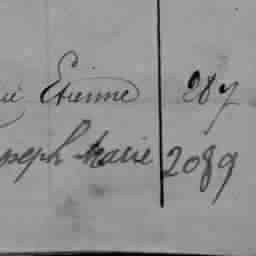 Etienne 287
oseph Marie 2089